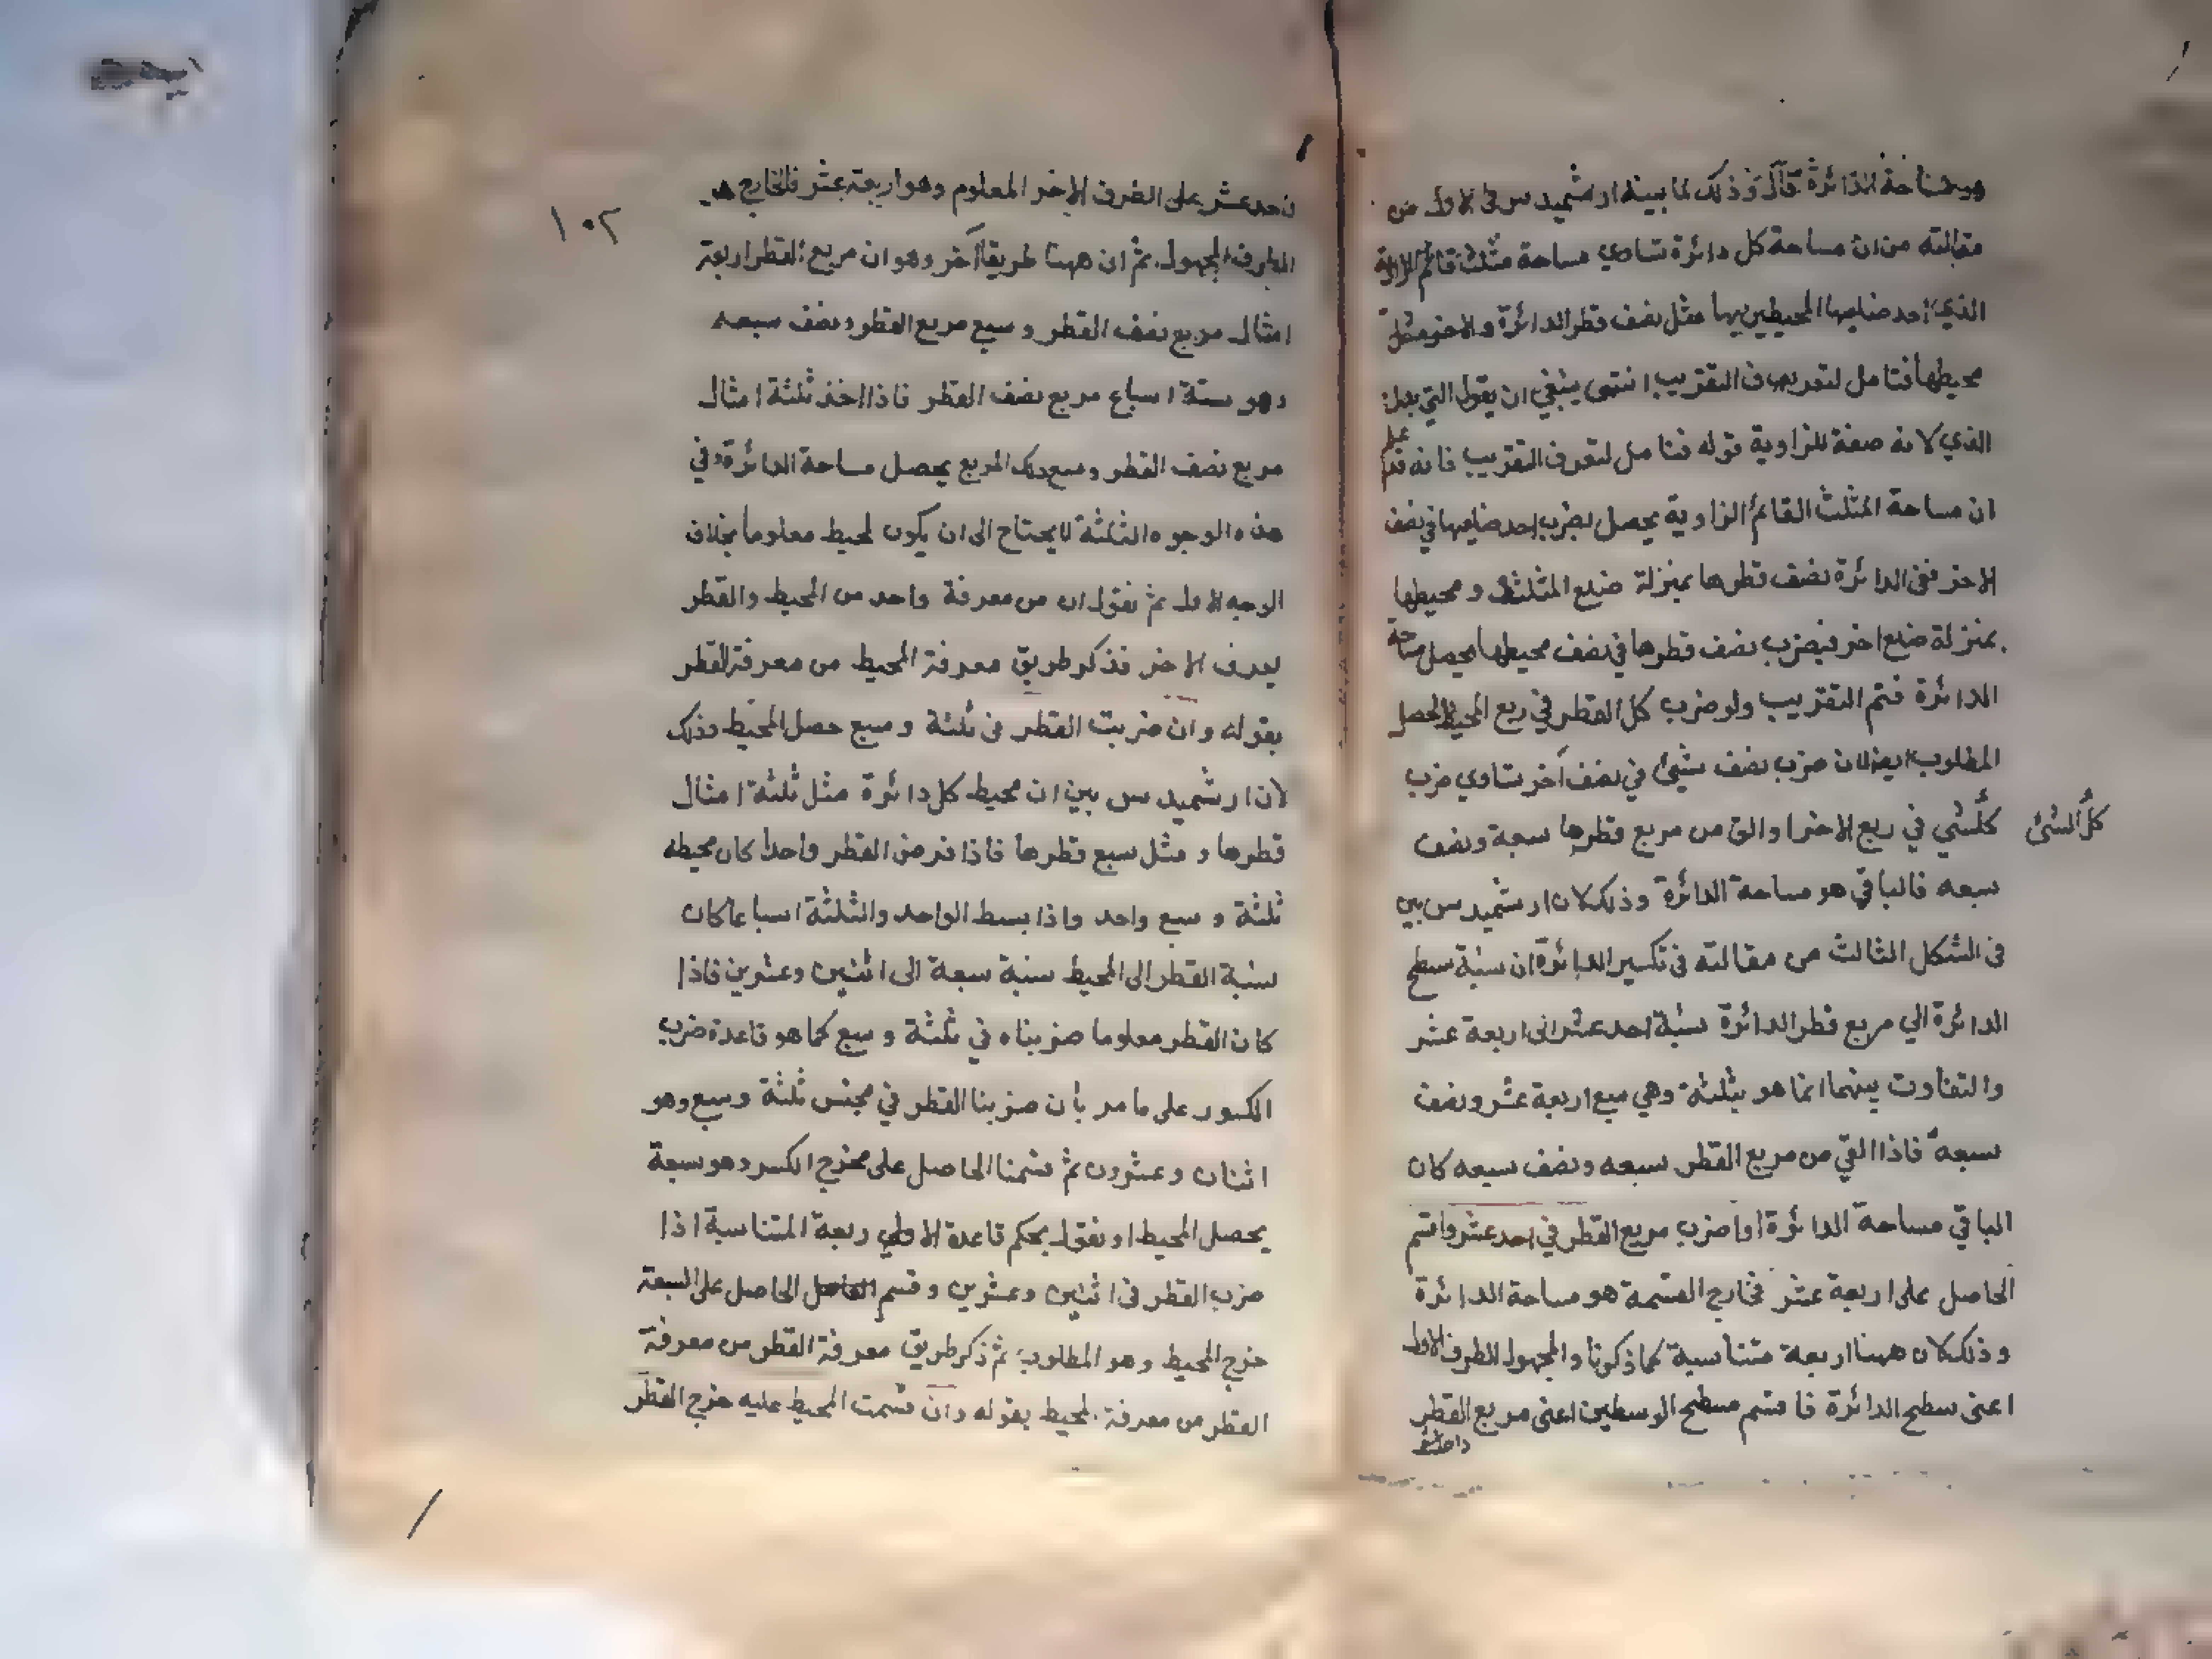 وهو مساحة الدائرة قال وذلك لما بينه ارشميدس في الاولى من
مقالته من ان مساحة كل دائرة تساوي مساحة مثلث قائم الزاوية
الذي احد ضلعيها المحيطين بها مثل نصف قطر الدائرة والاخر مثل
محيطها فتامل لتعريف التقريب انتهى ينبغي ان يقول التي بدل
الذي لانه صفة للزاوية قوله فتامل لتعرف التقريب فانه قد علم
ان مساحة المثلث القائم الزاوية يحصل بضرب احد ضلعيها في نصف
الاخر ففي الدائرة نصف قطرها بمنزلة ضلع المثلث و محيطها
بمنزلة ضلع اخر فيضرب نصف قطرها في نصف محيطها يحصل مساحة
الدائرة فتم التقريب ولو ضرب كل القطر في ربع المحيط لحصل
المطلوب ايضا لان ضرب نصف شيئ في نصف آخر يساوي ضرب
كل شي في ربع الاخر او الق من مربع قطرها سبعة ونصف
كل الشئ
سبعه فالباقي هو مساحة الدائرة وذلك لان ارشميدس بين
في الشكل الثالث من مقالته في تكسير الدائرة ان نسبة سطح
الدائرة الي مربع قطر الدائرة نسبة احد عشر الى اربعة عشر
والتفاوت بينهما انما هو بثلثة وهي سبع اربعة عشر ونصف
سبعه فاذا القي من مربع القطر سبعه ونصف سبعه كان
الباقي مساحة الدائرة او اضرب مربع القطر في احد عشر واقسم
الحاصل على اربعة عشر فخارج القسمة هو مساحة الدائرة
وذلك لان ههنا اربعة متناسبة كما ذكرنا والمجهول الطرف الاول
اعنى سطح الدائرة فاقسم مسطح الوسطين اعنى مربع القطر
واحد عشر
١٠٢
احد عشر على الطرف الاخر المعلوم وهو اربعة عشر فالخارج هو
الطرف المجهول ثم ان ههنا طريقا آخر وهو ان مربع القطر اربعة
امثال مربع نصف القطر و سبع مربع القطر ونصف سبعه
وهو ستة اسباع مربع نصف القطر فاذا اخذ ثلثة امثال
مربع نصف القطر وسبع ذلك المربع يحصل مساحة الدائرة وفي
هذه الوجوه الثلثة لا يحتاج الى ان يكون المحيط معلوما بخلاف
الوجه الاول ثم نقول ان من معرفة واحد من المحيط والقطر
يعرف الاخر فذكر طريق معرفة المحيط من معرفة القطر
بقوله وان ضربت القطر في ثلثة و سبع حصل المحيط وذلك
لان ارشميدس بين ان محيط كل دائرة مثل ثلثة امثال
قطرها و مثل سبع قطرها فاذا فرض القطر واحدا كان محيطه
ثلثة و سبع واحد واذا بسط الواحد والثلثة اسباعا كان
نسبة القطر الى المحيط نسبة سبعة الى اثنين وعشرين فاذا
كان القطر معلوما ضربناه في ثلثة و سبع كما هو قاعدة ضرب
الكسور على ما مر بأن ضربنا القطر في مجنس ثلثة وسبع وهو
اثنان وعشرون ثم قسمنا الحاصل على مخرج الكسر وهو سبعة
يحصل المحيط او نقول بحكم قاعدة الاربعة المتناسبة اذا
ضرب القطر في اثنين وعشرين وقسم الحاصل على السبعة
خرج المحيط وهو المطلوب ثم ذكر طريق معرفة القطر من معرفة
القطر من معرفة المحيط بقوله وان قسمت المحيط عليه خرج القطر